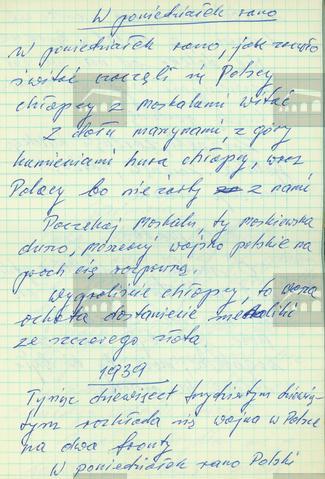 W poniedziałek rano
W poniedziałek rano, jak zaczęło
świtać zaczęli się Polscy
chłopcy z moskalami witać
Z dołu maxynami, z góry
kamieniami hura chłopcy, wraz
Polacy bo nie z nami
Poczekaj moskalu, ty moskiewska
duszo, wojsko polskie na
proch cię
Wygraliście chłopcy, to wasza
ochota dostaniecie medaliki
ze szczerego złota
1939
Tysiąc dziewięćset trzydziestym dziewią-
tym rozkłada się wojna w Polsce
na dwa fronty
W poniedziałek rano Polski